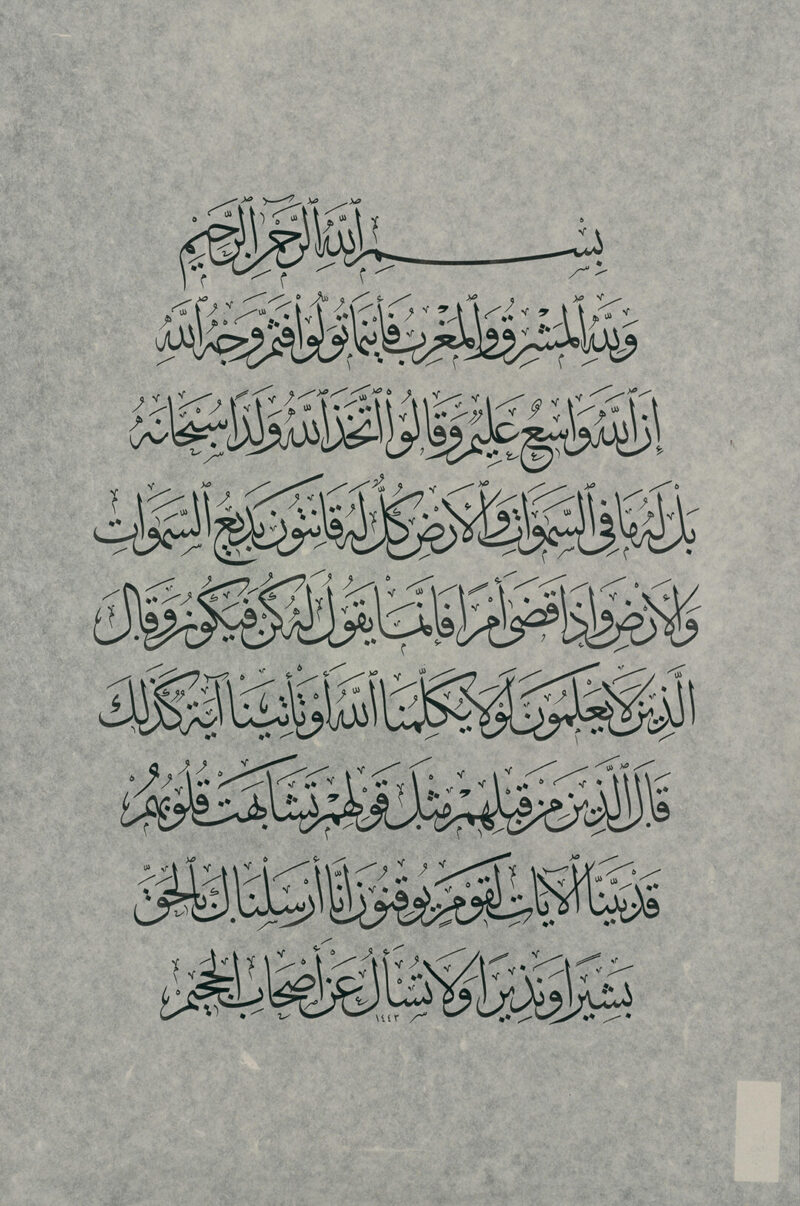 بِسْمِ ٱللَّهِ ٱلرَّحْمَٰنِ ٱلرَّحِيمِ
وَلِلَّهِ ٱلْمَشْرِقُ وَٱلْمَغْرِبُ فَأَيْنَمَا تُوَلُّوا فَثَمَّ وَجْهُ ٱللَّهِ
إِنَّ ٱللَّهَ وَاسِعٌ عَلِيمٌ وَقَالُوا ٱتَّخَذَ ٱللَّهُ وَلَدًا سُبْحَانَهُ
بَلْ لَهُ مَا فِي ٱلسَّمَوَاتِ وَٱلْأَرْضِ كُلٌّ لَهُ قَانِتُونَ بَدِيعُ ٱلسَّمَوَاتِ
وَٱلْأَرْضِ وَإِذَا قَضَى أَمْرًا فَإِنَّمَا يَقُولُ لَهُ كُنْ فَيَكُونُ وَقَالَ
ٱلَّذِينَ لَا يَعْلَمُونَ لَوْلَا يُكَلِّمُنَا ٱللَّهُ أَوْ تَأْتِينَا آيَةٌ كَذَلِكَ
قَالَ ٱلَّذِينَ مِنْ قَبْلِهِمْ مِثْلَ قَوْلِهِمْ تَشَابَهَتْ قُلُوبُهُمْ
قَدْ بَيَّنَّا ٱلْآيَاتِ لِقَوْمٍ يُوقِنُونَ إِنَّا أَرْسَلْنَاكَ بِٱلْحَقِّ
بَشِيرًا وَنَذِيرًا وَلَا تُسْأَلُ عَنْ أَصْحَابِ ٱلْجَحِيمِ
١٤٤٣